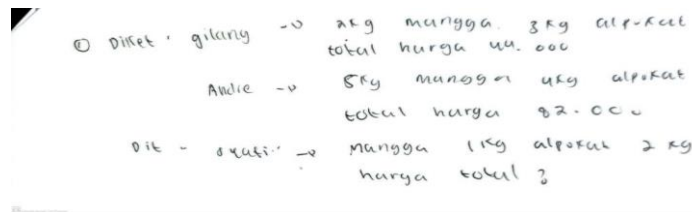 ① Diket : gilang → 2kg mangga 3kg alpukat
total harga 44.000
Andre → 5kg mangga 4kg alpokat
total harga 82.000
Dit - → mangga 1kg alpokat 2kg
harga total ?